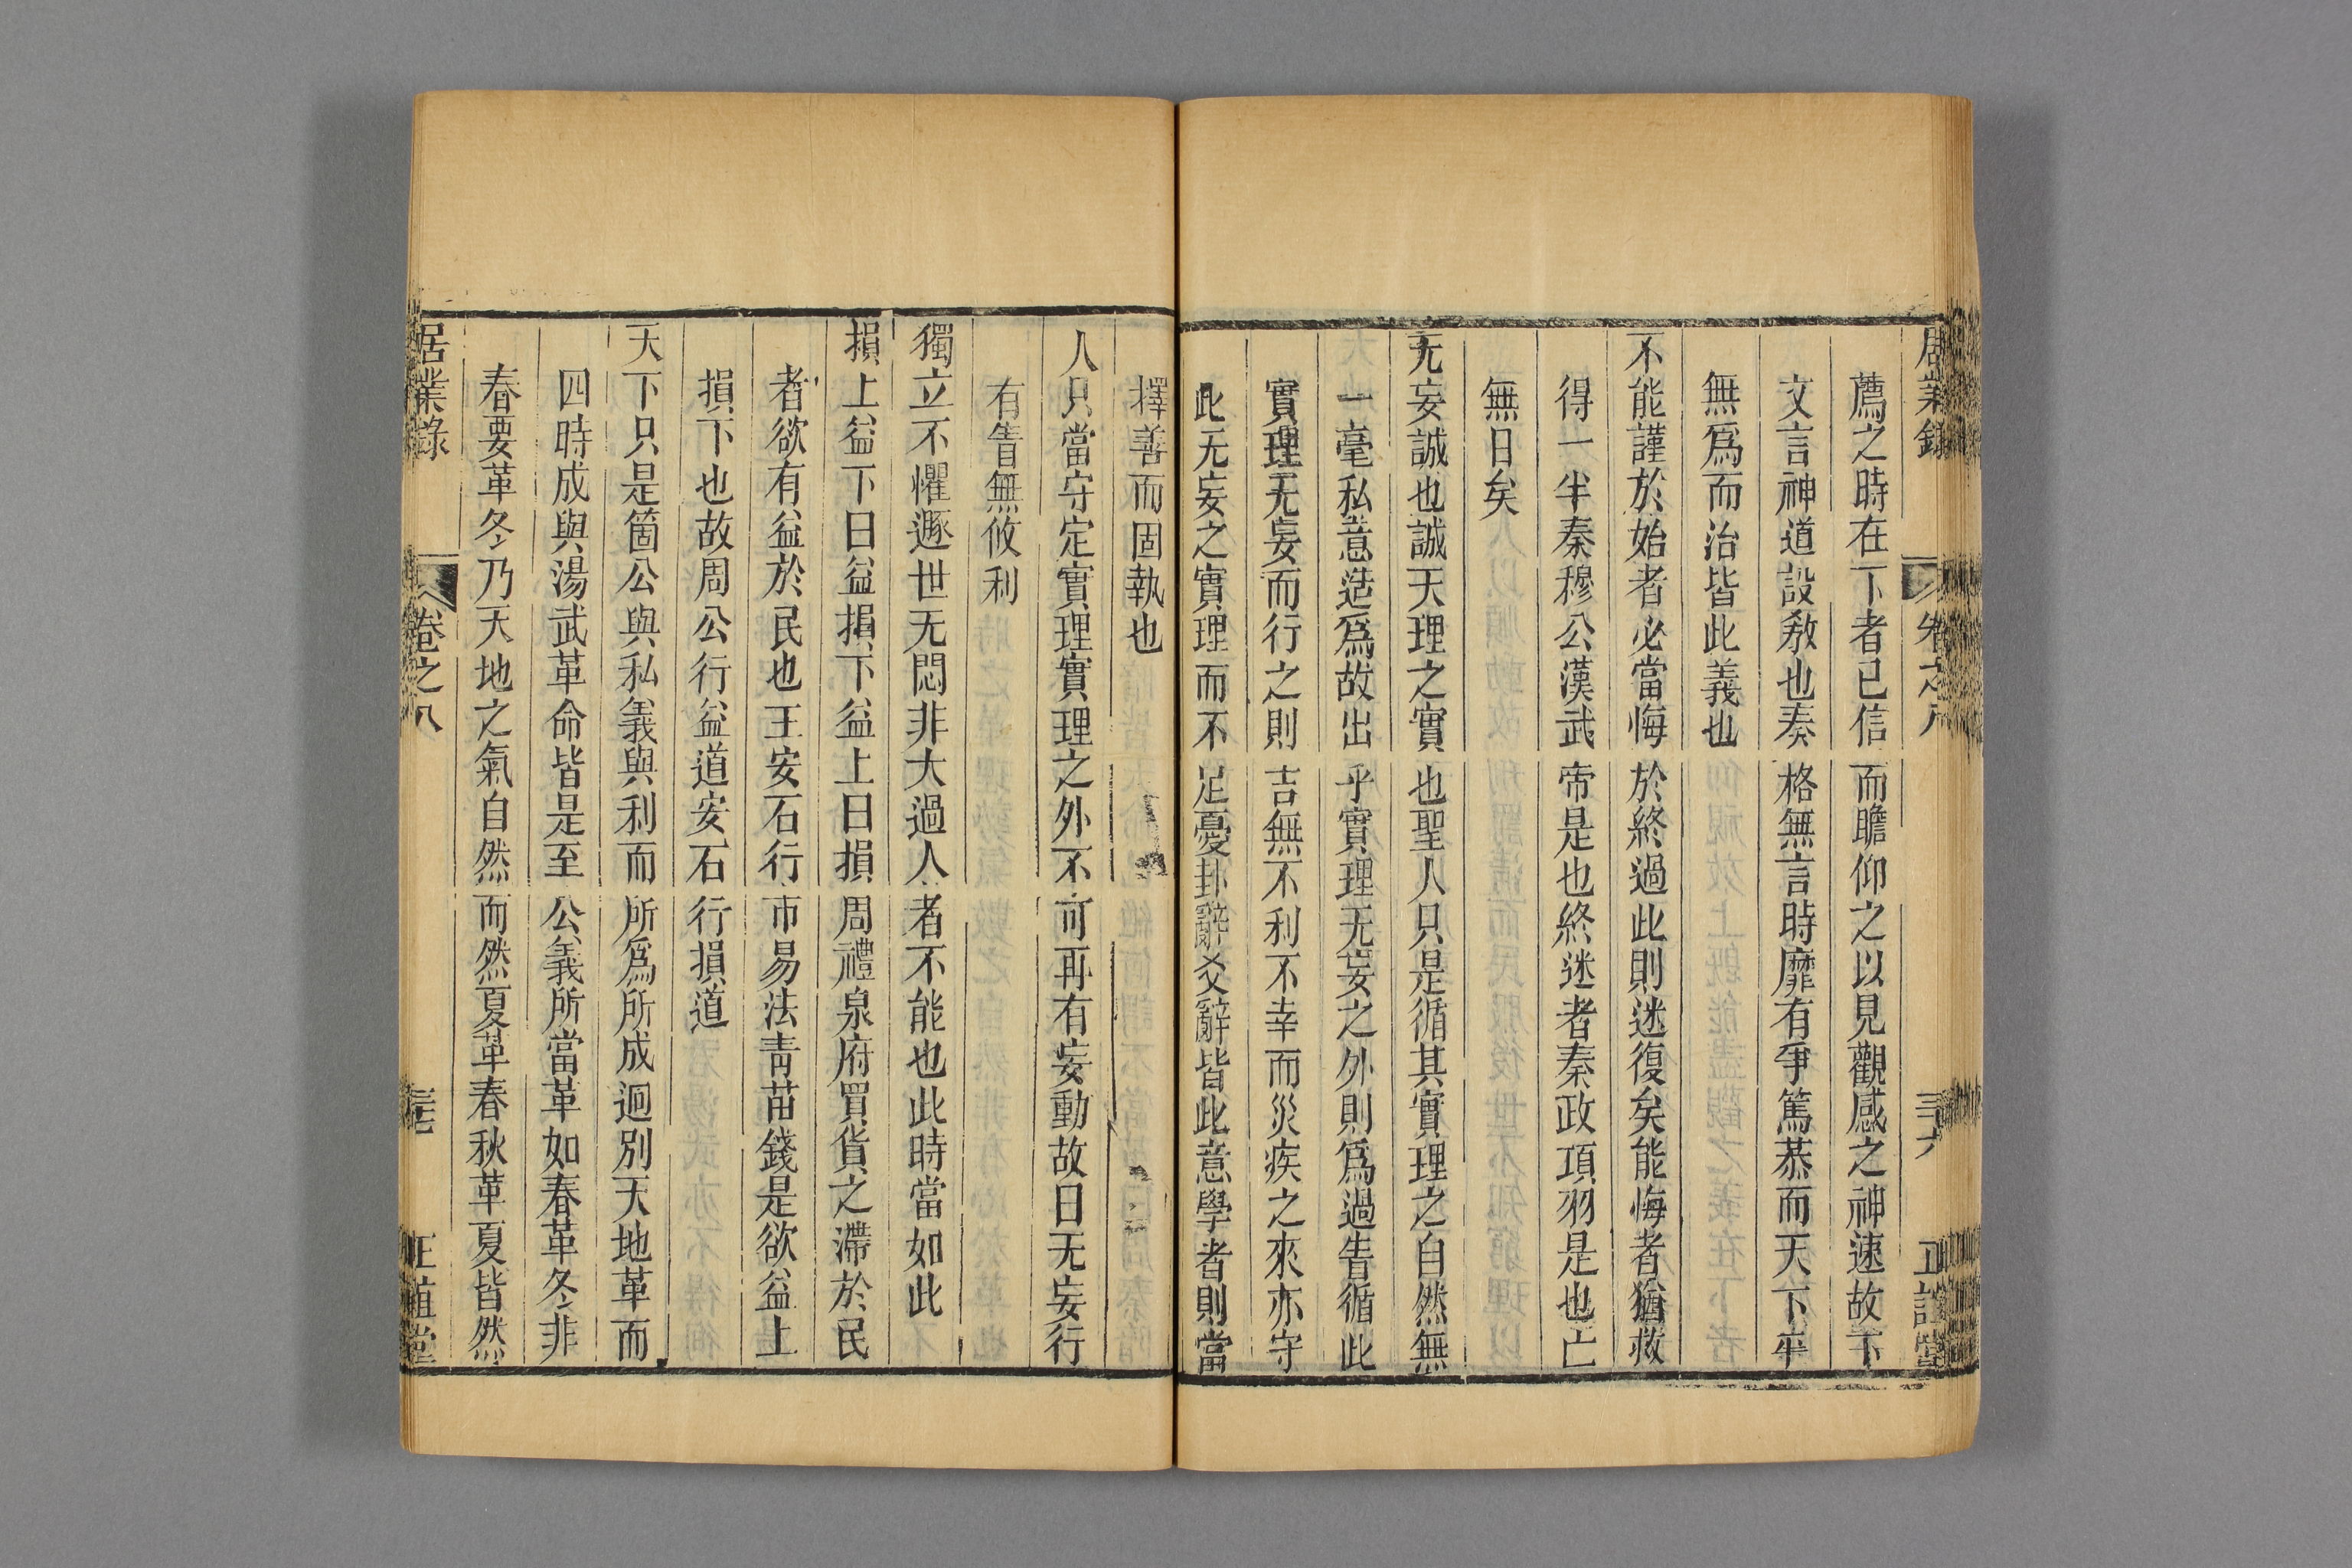 居業錄 卷之八 三十六 正誼堂
薦之時在下者已信而瞻仰之以見觀感之神速故下
文言神道設敎也奏格無言時靡有爭篤恭而天下平
無爲而治皆此義也
不能謹於始者必當悔於終過此則迷復矣能悔者猶救
得一半秦穆公漢武帝是也終迷者秦政項羽是也亡
無日矣
无妄誠也誠天理之實也聖人只是循其實理之自然無
一毫私意造爲故出乎實理无妄之外則爲過眚循此
實理无妄而行之則吉無不利不幸而災疾之來亦守
此无妄之實理而不足憂卦辭爻辭皆此意學者則當
擇善而固執也
人只當守定實理實理之外不可再有妄動故曰无妄行
有眚無攸利
獨立不懼遯世无悶非大過人者不能也此時當如此
損上益下曰益損下益上曰損周禮泉府買貨之滯於民
者欲有益於民也王安石行市易法靑苗錢是欲益上
損下也故周公行益道安石行損道
天下只是箇公與私義與利而所爲所成迥別天地革而
四時成與湯武革命皆是至公義所當革如春革冬非
春要革冬乃天地之氣自然而然夏革春秋革夏皆然
居業錄 卷之八 三十七 正誼堂